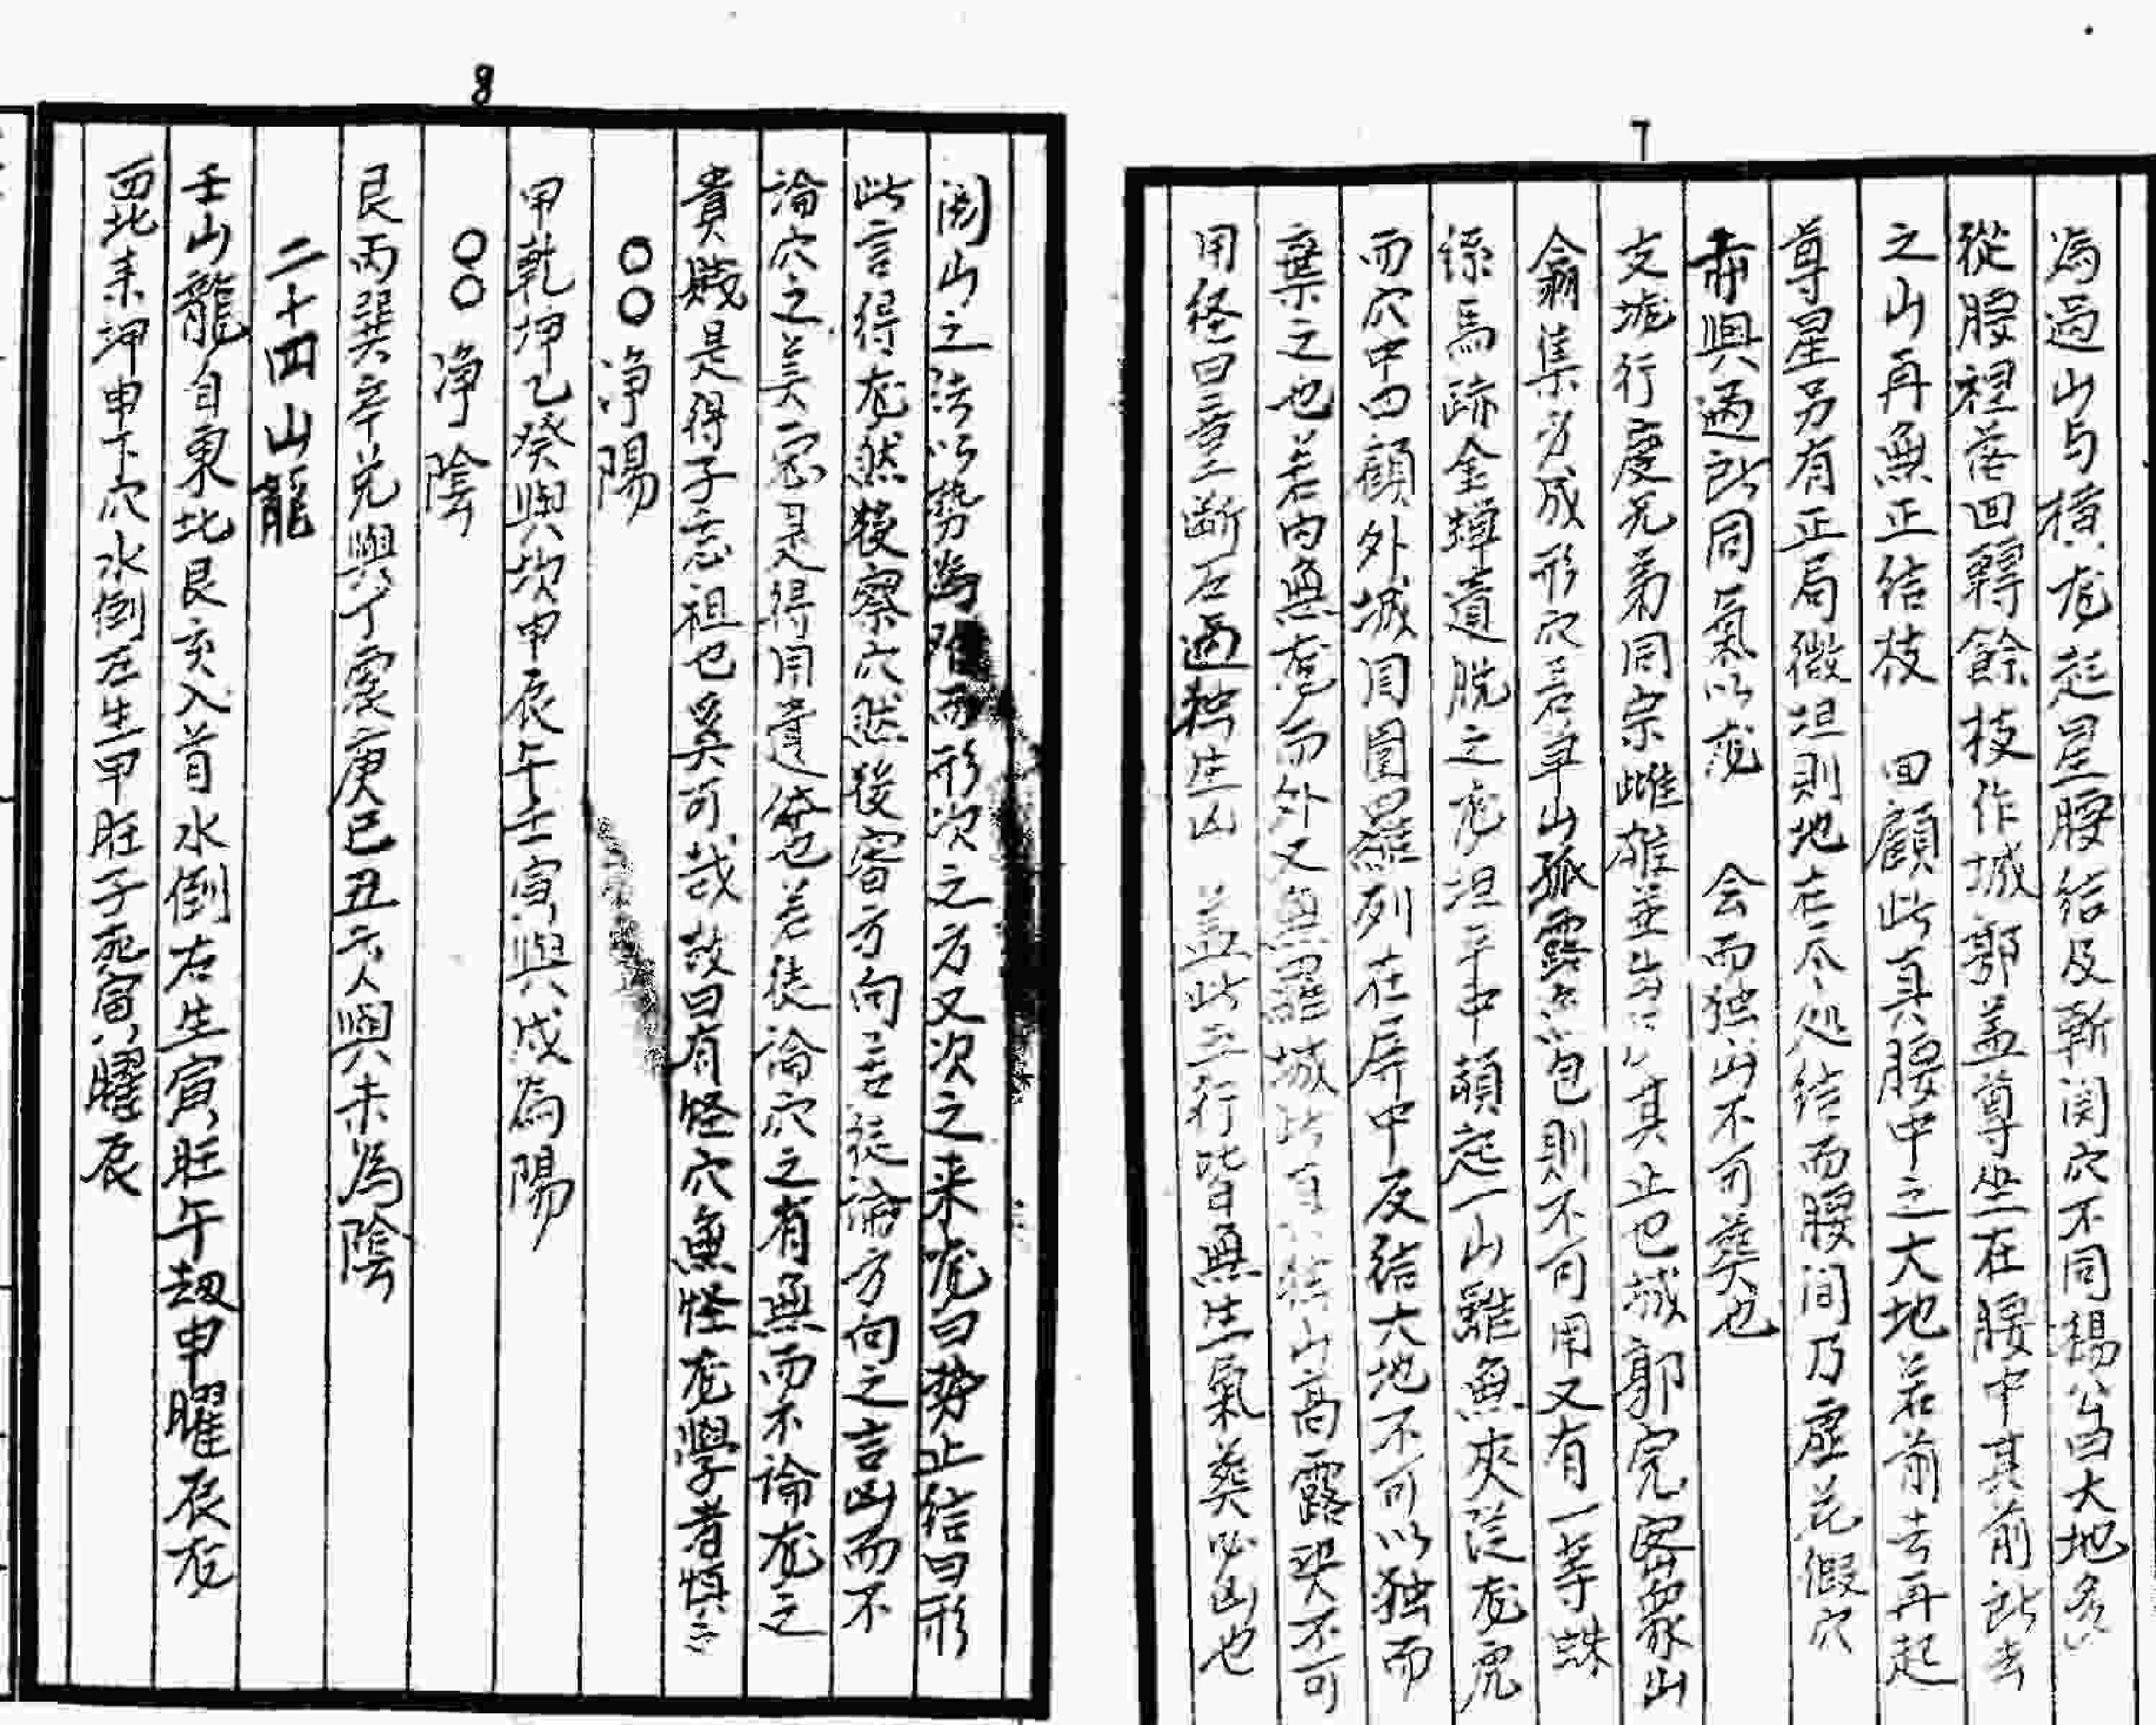 7
為過山与橫龙起星腰結及斬関穴不同楊公曰大地多
從腰裡落回轉餘枝作城郭盖尊坐在腰中其前所去
之山再無正結枝 回顧此真腰中之大地若前去再起
尊星另有正局微坦則地在尽処结而腰间乃虛花假穴
興過所同氣以龙 会而独山不可葬也
支龙行度兄弟同宗雌雄並出 其止也城郭完密眾山
翕集方成形穴若单山孤露 包則不可用又有一等蛛
係馬跡金蟬遺脫之龙坦平中頓起一山雖無夾從龙虎
而穴中四顧外城周圍羅列在屏中反结大地不可以独而
棄之也若内無龙虎而外又無羅城 山高露 不可
用经曰童断石過独生凶 盖此五行皆無生氣葬必凶也
8
関山之法以势為难而形次之方又次之来龙曰势止结曰形
此言得龙然後察穴然後審方向言徒論方向之言凶而不
論穴之美恶是得用遺体也若徒論穴之有無而不論龙之
貴賤是得子忘祖也奚可哉故曰有怪穴無怪龙學者慎之
〇〇净陽
甲乾坤乙癸與坎申辰午壬寅與戌為陽
〇〇净陰
艮丙巽辛兑與丁震庚巳丑六人與未為陰
二十四山龍
壬山龍自東北艮亥入首水倒右生寅旺午劫申曜辰龙
西北来坤申下穴水倒左生甲旺子死寅曜辰